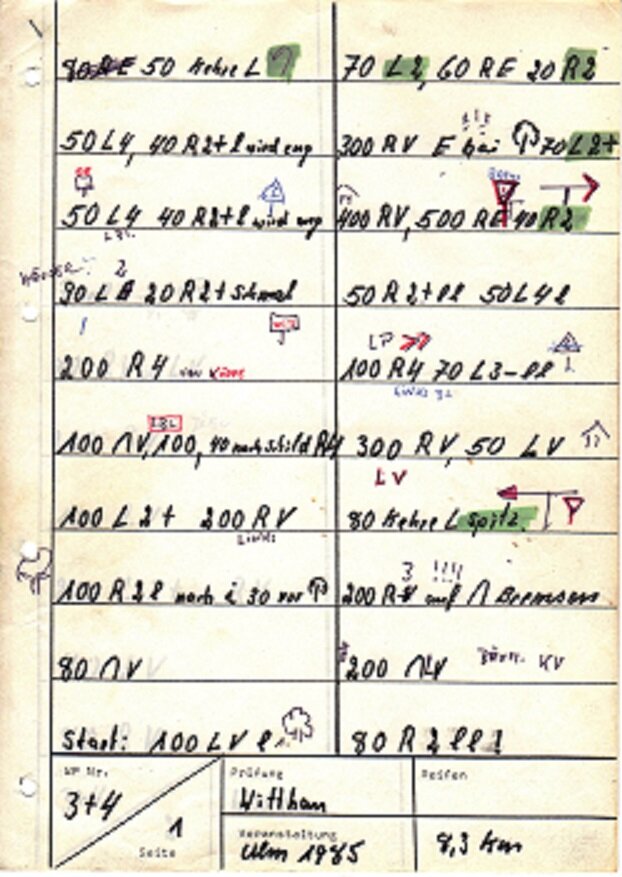 50 Kehre L
50 L4, 40 R2+l wird eng
50 L4 40 R2+l wird eng
LBL
30 L 20 R2+ Schmal
200 R4 vor Kuppe
LBL
100 ∩V, 100, 40 nach Schild R4
100 L2+ 200 RV
Links
100 R2l nach i 30 vor
80 ∩V
Start: 100 LV l
70 L2, 60 RE 20 R2
!!!
300 RV E bei 70 L2+
400 RV, 500 RE 40 R2
50 R2+ll 50 L4l
LP
100 R4 70 L3-ll
Links
300 RV, 50 LV
LV
80 Kehre L Spitz
3 !!!!
200 R auf ∩ Bremsen
200 ∩LV KV
80 R2ll!
WP Nr.
3+4
1
Seite
Prüfung
Witthau
Veranstaltung
Ulm 1985
Reifen
8,3 km